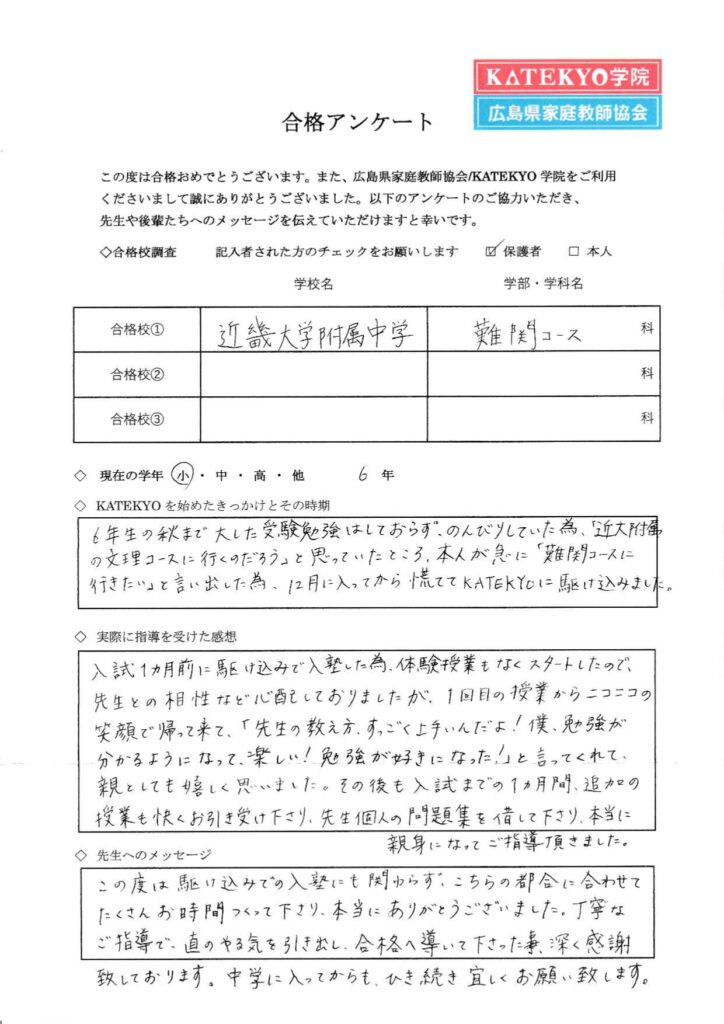 KATEKYO学院
広島県家庭教師協会
合格アンケート
この度は合格おめでとうございます。また、広島県家庭教師協会/KATEKYO 学院をご利用
くださいまして誠にありがとうございました。以下のアンケートのご協力いただき、
先生や後輩たちへのメッセージを伝えていただけますと幸いです。
◇合格校調査 記入者された方のチェックをお願いします ☑ 保護者 □ 本人
学校名 学部・学科名
合格校① 近畿大学附属中学 難関コース 科
合格校② 科
合格校③ 科
◇ 現在の学年 小・中・高・他 6 年
◇ KATEKYO を始めたきっかけとその時期
6年生の秋まで大した受験勉強はしておらず、のんびりしていた為、「近大附属
の文理コースに行くのだろう」と思っていたところ、本人が急に「難関コースに
行きたい」と言い出した為、12月に入ってから慌ててKATEKYOに駆け込みました。
◇ 実際に指導を受けた感想
入試1カ月前に駆け込みで入塾した為、体験授業もなくスタートしたので、
先生との相性など心配しておりましたが、1回目の授業からニコニコの
笑顔で帰って来て、「先生の教え方、すっごく上手いんだよ!僕、勉強が
分かるようになって、楽しい!勉強が好きになった!」と言ってくれて、
親としても嬉しく思いました。その後も入試までの1カ月間、追加の
授業も快くお引き受け下さり、先生個人の問題集を借して下さり、本当に
親身になってご指導頂きました。
◇ 先生へのメッセージ
この度は駆け込みでの入塾にも関わらず、こちらの都合に合わせて
たくさんお時間つくって下さり、本当にありがとうございました。丁寧な
ご指導で、直のやる気を引き出し、合格へ導いて下さった事、深く感謝
致しております。中学に入ってからも、ひき続き宜しくお願い致します。